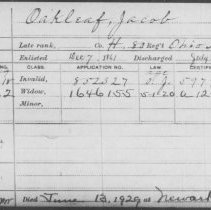 Oakleaf, Jacob
Late rank, Co. H, 82 Reg't Ohio
Enlisted Dec 7, 1861 Discharged July
CLASS. APPLICATION NO. LAW. CERTIFICATE
Invalid, 852527 597
Widow, 1646155
Minor,
Died June 13, 1929 at Newark